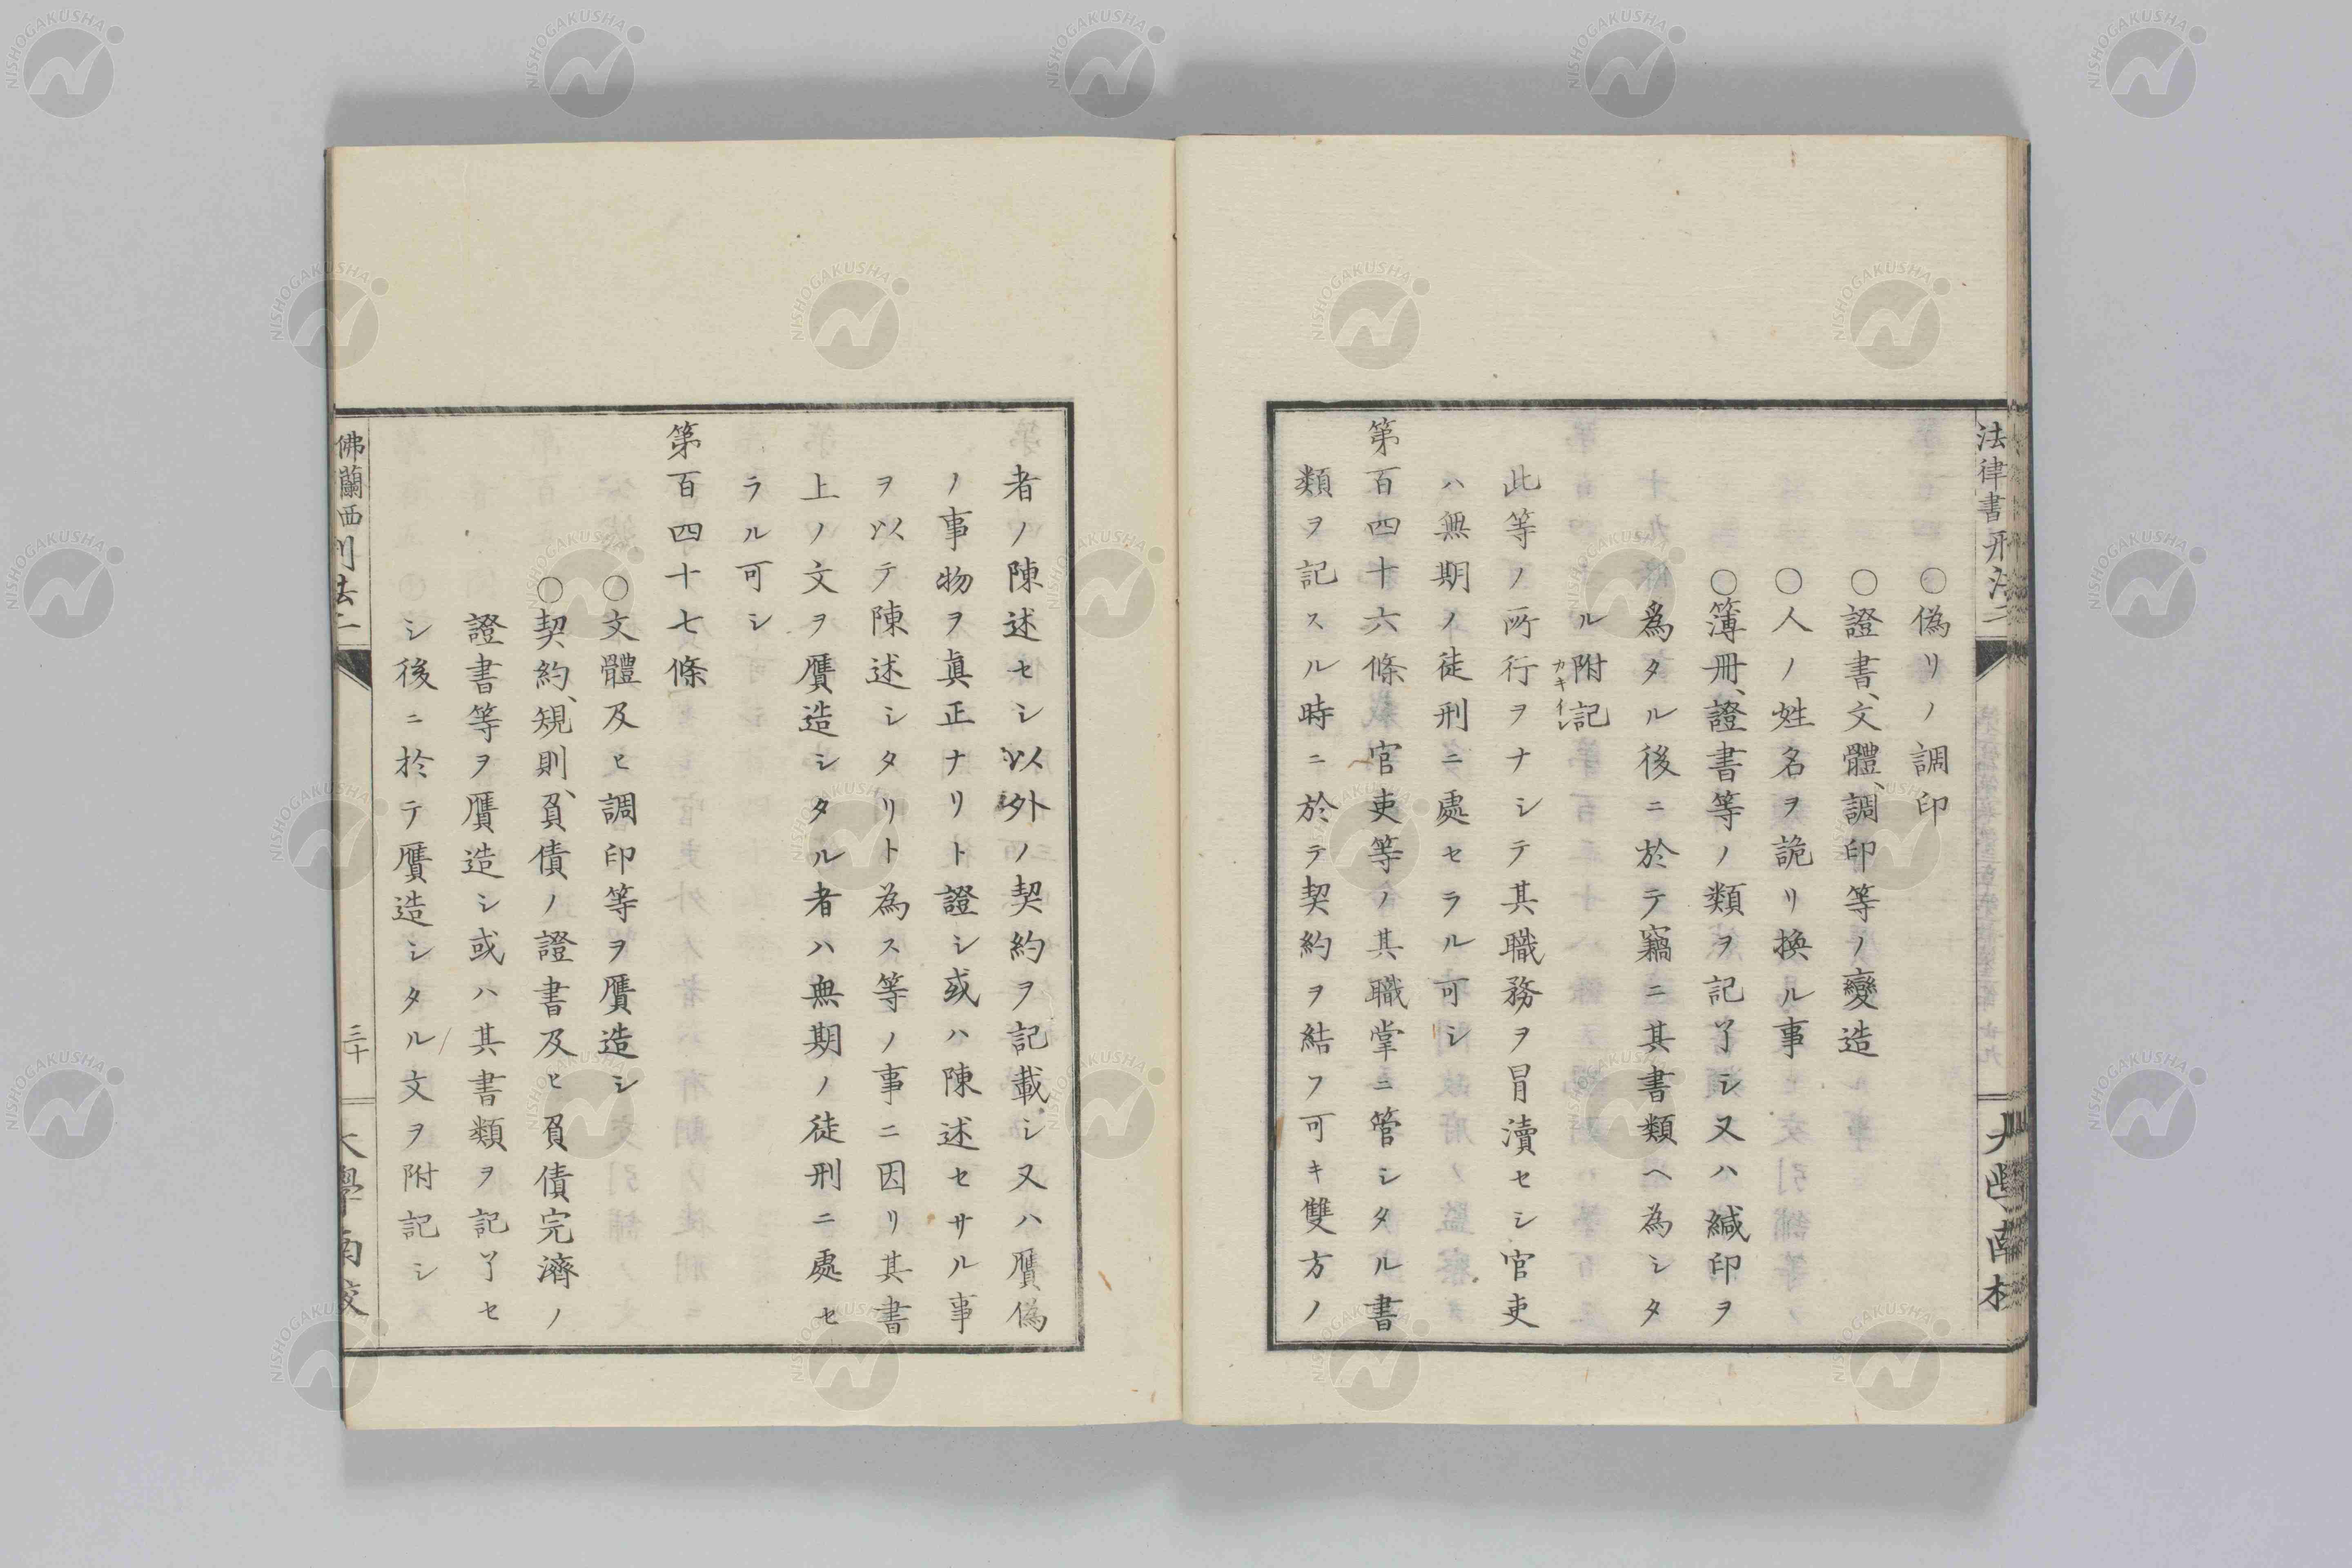 法律書刑法二
○偽リノ調印
○證書、文體、調印等ノ變造
○人ノ姓名ヲ詭リ換ル事
○簿冊、證書等ノ類ヲ記了シ又ハ緘印ヲ
爲タル後ニ於テ竊ニ其書類ヘ為シタ
ル附記
カキイレ
此等ノ所行ヲナシテ其職務ヲ冒瀆セシ官吏
ハ無期ノ徒刑ニ處セラル可シ
第百四十六條 官吏等ノ其職掌ニ管シタル書
類ヲ記スル時ニ於テ契約ヲ結フ可キ雙方ノ
者ノ陳述セシ以外ノ契約ヲ記載シ又ハ贋偽
ノ事物ヲ眞正ナリト證シ或ハ陳述セサル事
ヲ以テ陳述シタリト為ス等ノ事ニ因リ其書
上ノ文ヲ贋造シタル者ハ無期ノ徒刑ニ處セ
ラル可シ
第百四十七條
○文體及ヒ調印等ヲ贋造シ
○契約、規則、負債ノ證書及ヒ負債完濟ノ
證書等ヲ贋造シ或ハ其書類ヲ記了セ
シ後ニ於テ贋造シタル文ヲ附記シ
佛蘭西刑法二
三十
大學南校
NISHOGAKUSHA